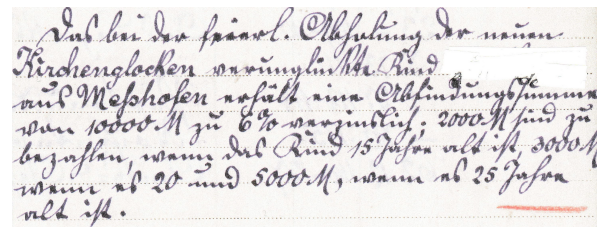 Das bei der feierl. Abholung der neuen
Kirchenglocken verunglückte Kind
aus Meßhofen erhält eine Abfindungssumme
von 10000 M zu 6% verzinslich. 2000 M sind zu
bezahlen, wenn das Kind 15 Jahre alt ist, 3000 M
wenn es 20 und 5000 M, wenn es 25 Jahre
alt ist.